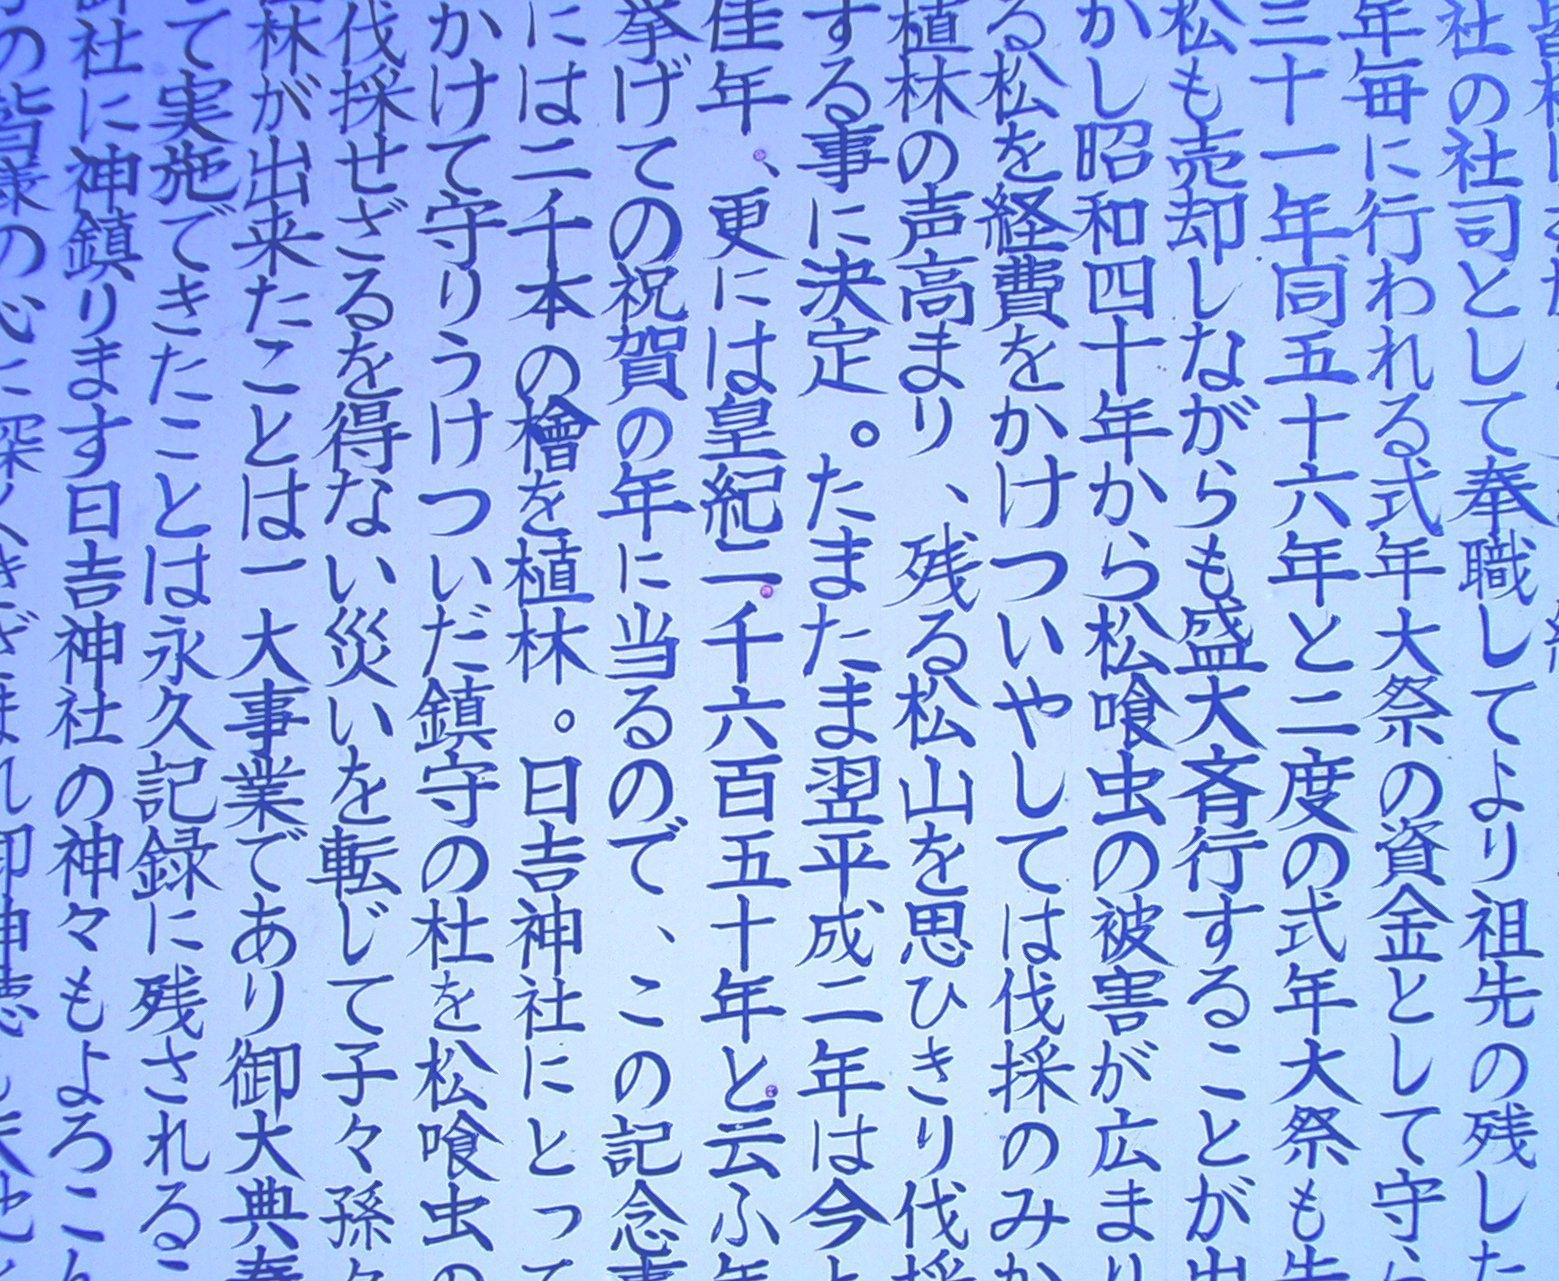 社の社司として奉職してより祖先の残した
年毎に行われる式年大祭の資金として守ら
三十一年同五十六年と二度の式年大祭も先
松も売却しながらも盛大斉行することが出
かし昭和四十年から松喰虫の被害が広まり
る松を経費をかけついやしては伐採のみか
植林の声高まり、残る松山を思ひきり伐採
する事に決定。たまたま翌平成二年は今と
佳年、更には皇紀二千六百五十年と云ふ年
挙げての祝賀の年に当るので、この記念事
には二千本の檜を植林。日吉神社にとって
かけて守りうけついだ鎮守の杜を松喰虫の
伐採せざるを得ない災いを転じて子々孫々
林が出来たことは一大事業であり御大典奉
て実施できたことは永久記録に残されるこ
社に神鎮ります日吉神社の神々もよろこん
の皆様の心に深くきざまれ御神徳